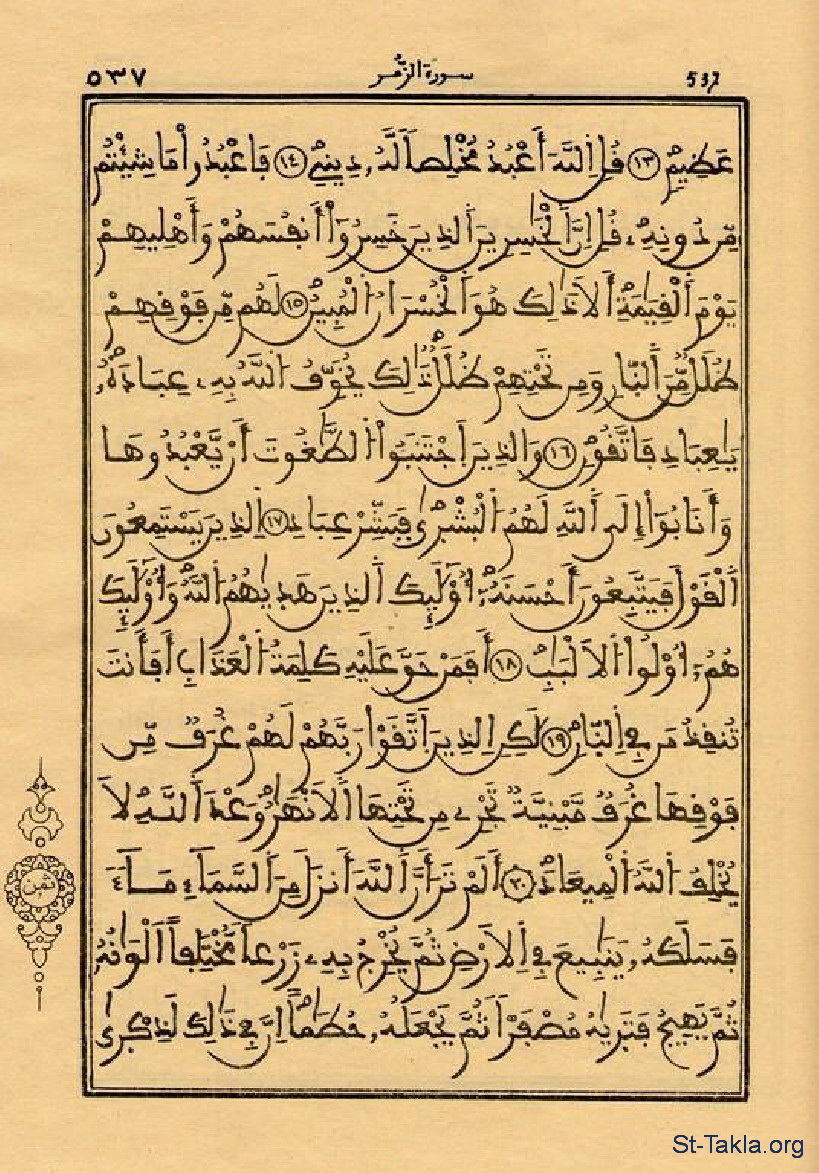 ٥٣٧ سورة الزُّمر 537
عَظِيمٍ ١٣ قُلِ اِللَّهَ أَعْبُدُ مُخْلِصاً لَّهُۥ دِينِے ١٤ فَاعْبُدُواْ مَا شِئْتُم
مِّن دُونِهِۦ قُلِ اِنَّ اَلْخَٰسِرِينَ اَلذِينَ خَسِرُوٓاْ أَنفُسَهُمْ وَأَهْلِيهِمْ
يَوْمَ اَلْقِيَٰمَةِ أَلَا ذَٰلِكَ هُوَ اَلْخُسْرَانُ اُلْمُبِينُ ١٥ لَهُم مِّن فَوْقِهِمْ
ظُلَلٌ مِّنَ اَلنَّارِ وَمِن تَحْتِهِمْ ظُلَلٌ ذَٰلِكَ يُخَوِّفُ اُللَّهُ بِهِۦ عِبَادَهُۥ
يَٰعِبَادِ فَاتَّقُونِ ١٦ وَالذِينَ اَجْتَنَبُواْ اُلطَّٰغُوتَ أَنْ يَّعْبُدُوهَا
وَأَنَابُوٓاْ إِلَى اَللَّهِ لَهُمُ اُلْبُشْرٜىٰ فَبَشِّرْ عِبَادِ ١٧ اِلذِينَ يَسْتَمِعُونَ
اَلْقَوْلَ فَيَتَّبِعُونَ أَحْسَنَهُۥٓ أُوْلَٰٓئِكَ اَلذِينَ هَدٜىٰهُمُ اُللَّهُ وَأُوْلَٰٓئِكَ
هُمُۥٓ أُوْلُواْ اُلَالْبَٰبِ ١٨ أَفَمَنْ حَقَّ عَلَيْهِ كَلِمَةُ اُلْعَذَابِ أَفَأَنتَ
تُنقِذُ مَن فِے اِلنَّارِ ١٩ لَٰكِنِ اِلذِينَ اَتَّقَوْاْ رَبَّهُمْ لَهُمْ غُرَفٌ مِّن
فَوْقِهَا غُرَفٌ مَّبْنِيَّةٌ تَجْرِے مِن تَحْتِهَا اَلَانْهَٰرُ وَعْدَ اَللَّهِ لَا
يُخْلِفُ اُللَّهُ اُلْمِيعَادَ ٢٠ أَلَمْ تَرَ أَنَّ اَللَّهَ أَنزَلَ مِنَ اَلسَّمَآءِ مَآءً
فَسَلَكَهُۥ يَنَٰبِيعَ فِے اِلَارْضِ ثُمَّ يُخْرِجُ بِهِۦ زَرْعاً مُّخْتَلِفاً اَلْوَٰنُهُۥ
ثُمَّ يَهِيجُ فَتَرٜىٰهُ مُصْفَرّاً ثُمَّ يَجْعَلُهُۥ حُطَٰماً اِنَّ فِے ذَٰلِكَ لَذِكْرٜىٰ
ثمن
St-Takla.org